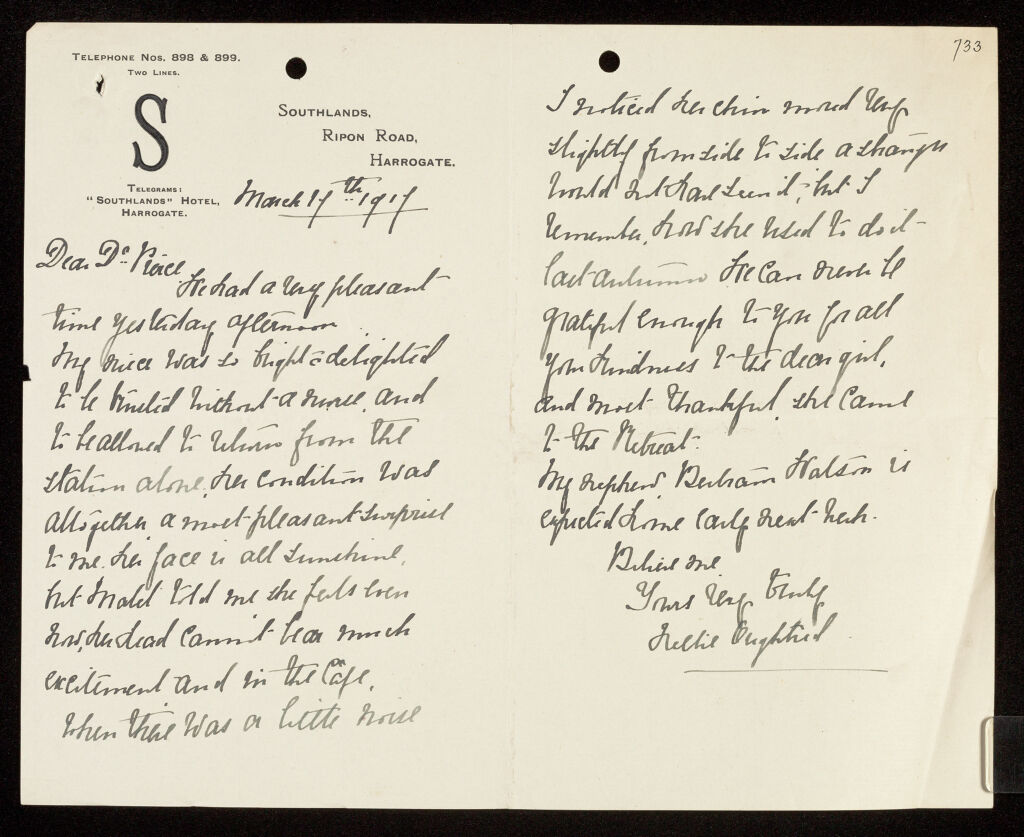 Telephone Nos. 898 & 899.
Two Lines.
S
Telegrams:
"Southlands" Hotel,
Harrogate.
Southlands,
Ripon Road,
Harrogate.
March 17th 1917
Dear Dr Pierce
We had a very pleasant
time yesterday afternoon
My niece was so bright & delighted
to be trusted without a nurse, and
to be allowed to return from the
station alone, her condition was
altogether a most pleasant surprise
to me. her face is all sunshine,
but Mabel told me she feels even
now, her head cannot bear much
excitement and in the Cafe,
when there was a little noise
733
I noticed her chin moved very
slightly from side to side a stranger
would not have seen it, but I
remember, how she used to do it
last autumn We can never be
grateful enough to you for all
your kindness to the dear girl,
and most thankful she came
to the Retreat.
My nephew Bertram Watson is
expected home early next week.
Believe me
Yours very truly
Nellie Oughtred